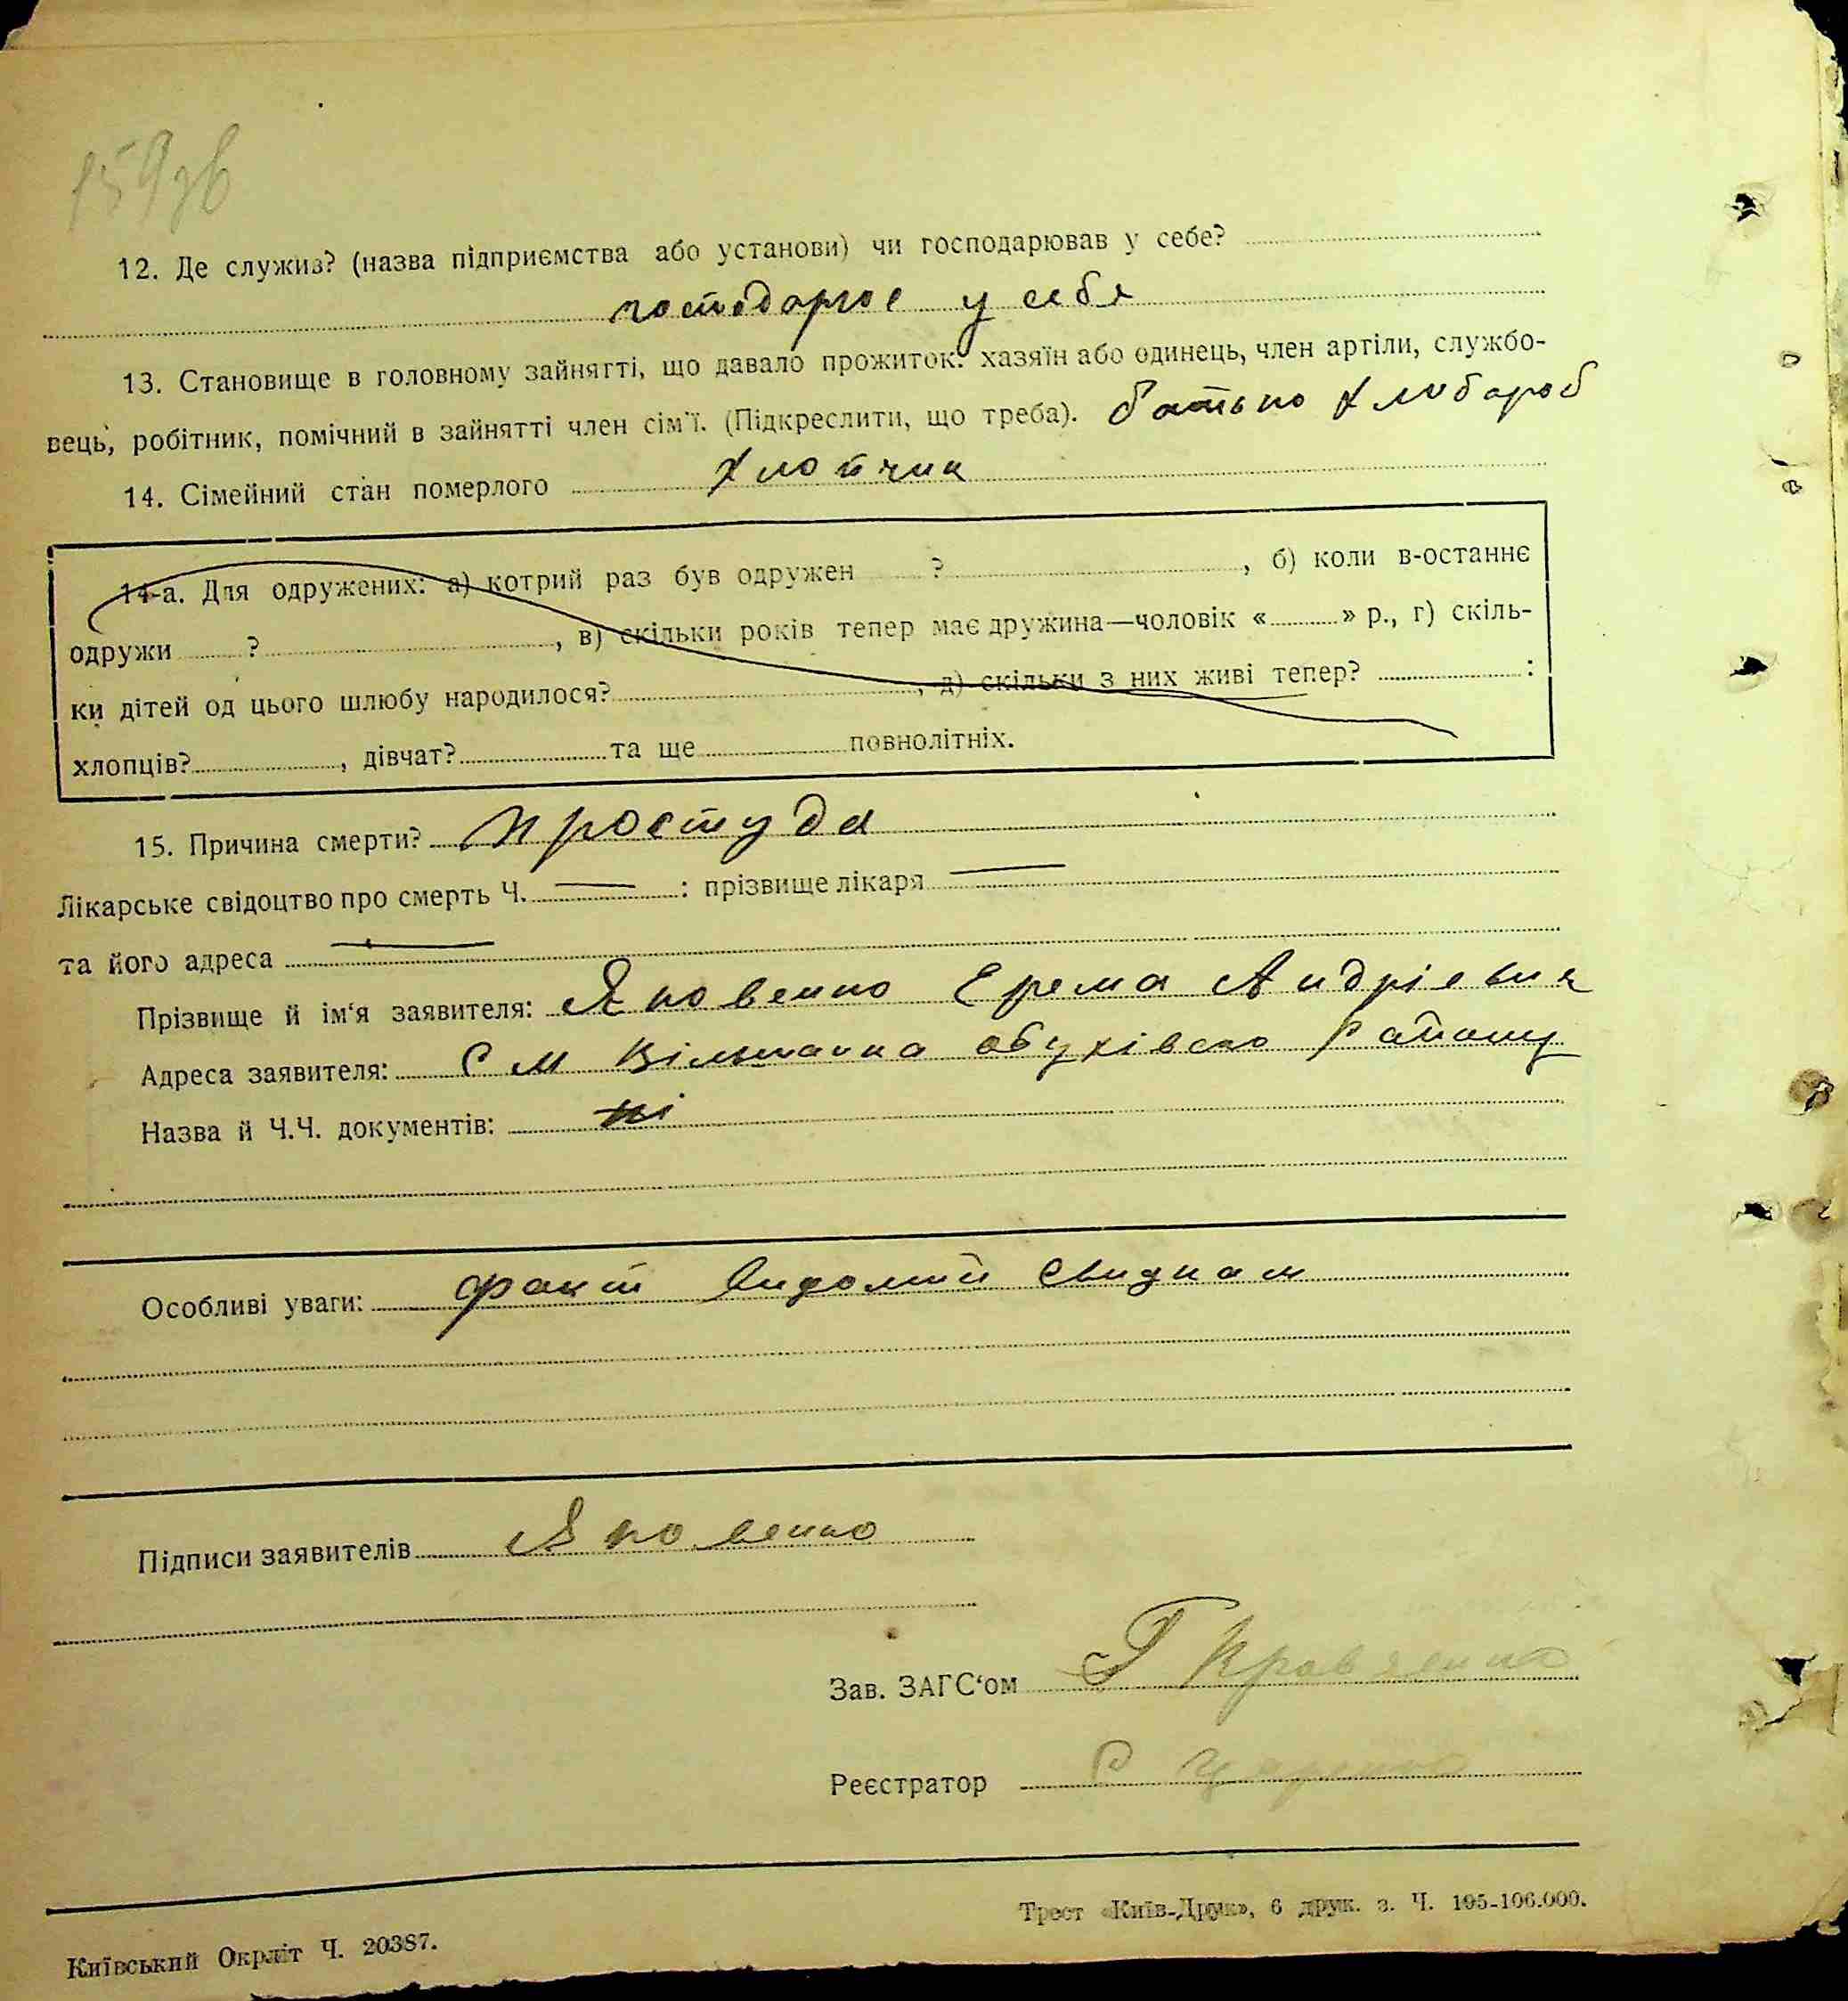 159зв
12. Де служив? (назва підприємства або установи) чи господарював у себе?
господарює у себя
13. Становище в головному зайнятті, що давало прожиток: хазяїн або одинець, член артіли, службо-
вець, робітник, помічний в зайнятті член сім'ї. (Підкреслити, що треба). батько хлибароб
14. Сімейний стан померлого хлопчик
14-а. Для одружених: а) котрий раз був одружен ? , б) коли в-останнє
одружи ? , в) скільки років тепер має дружина—чоловік « » р., г) скіль-
ки дітей од цього шлюбу народилося? , д) скільки з них живі тепер? :
хлопців? , дівчат? та ще повнолітніх.
15. Причина смерти? простуда
Лікарське свідоцтво про смерть Ч. — : прізвище лікаря —
та його адреса —
Прізвище й ім'я заявителя: Яковенко Ерема Андріевич
Адреса заявителя: С М обухівсько Району
Назва й Ч.Ч. документів: ні
Особливі уваги: факт видомий свидкам
Підписи заявителів Яковенко
Зав. ЗАГС'ом Г Кравченко
Реєстратор
Київський Окрліт Ч. 20387.
Трест «Київ-Друк», 6 друк. з. Ч. 195-106.000.